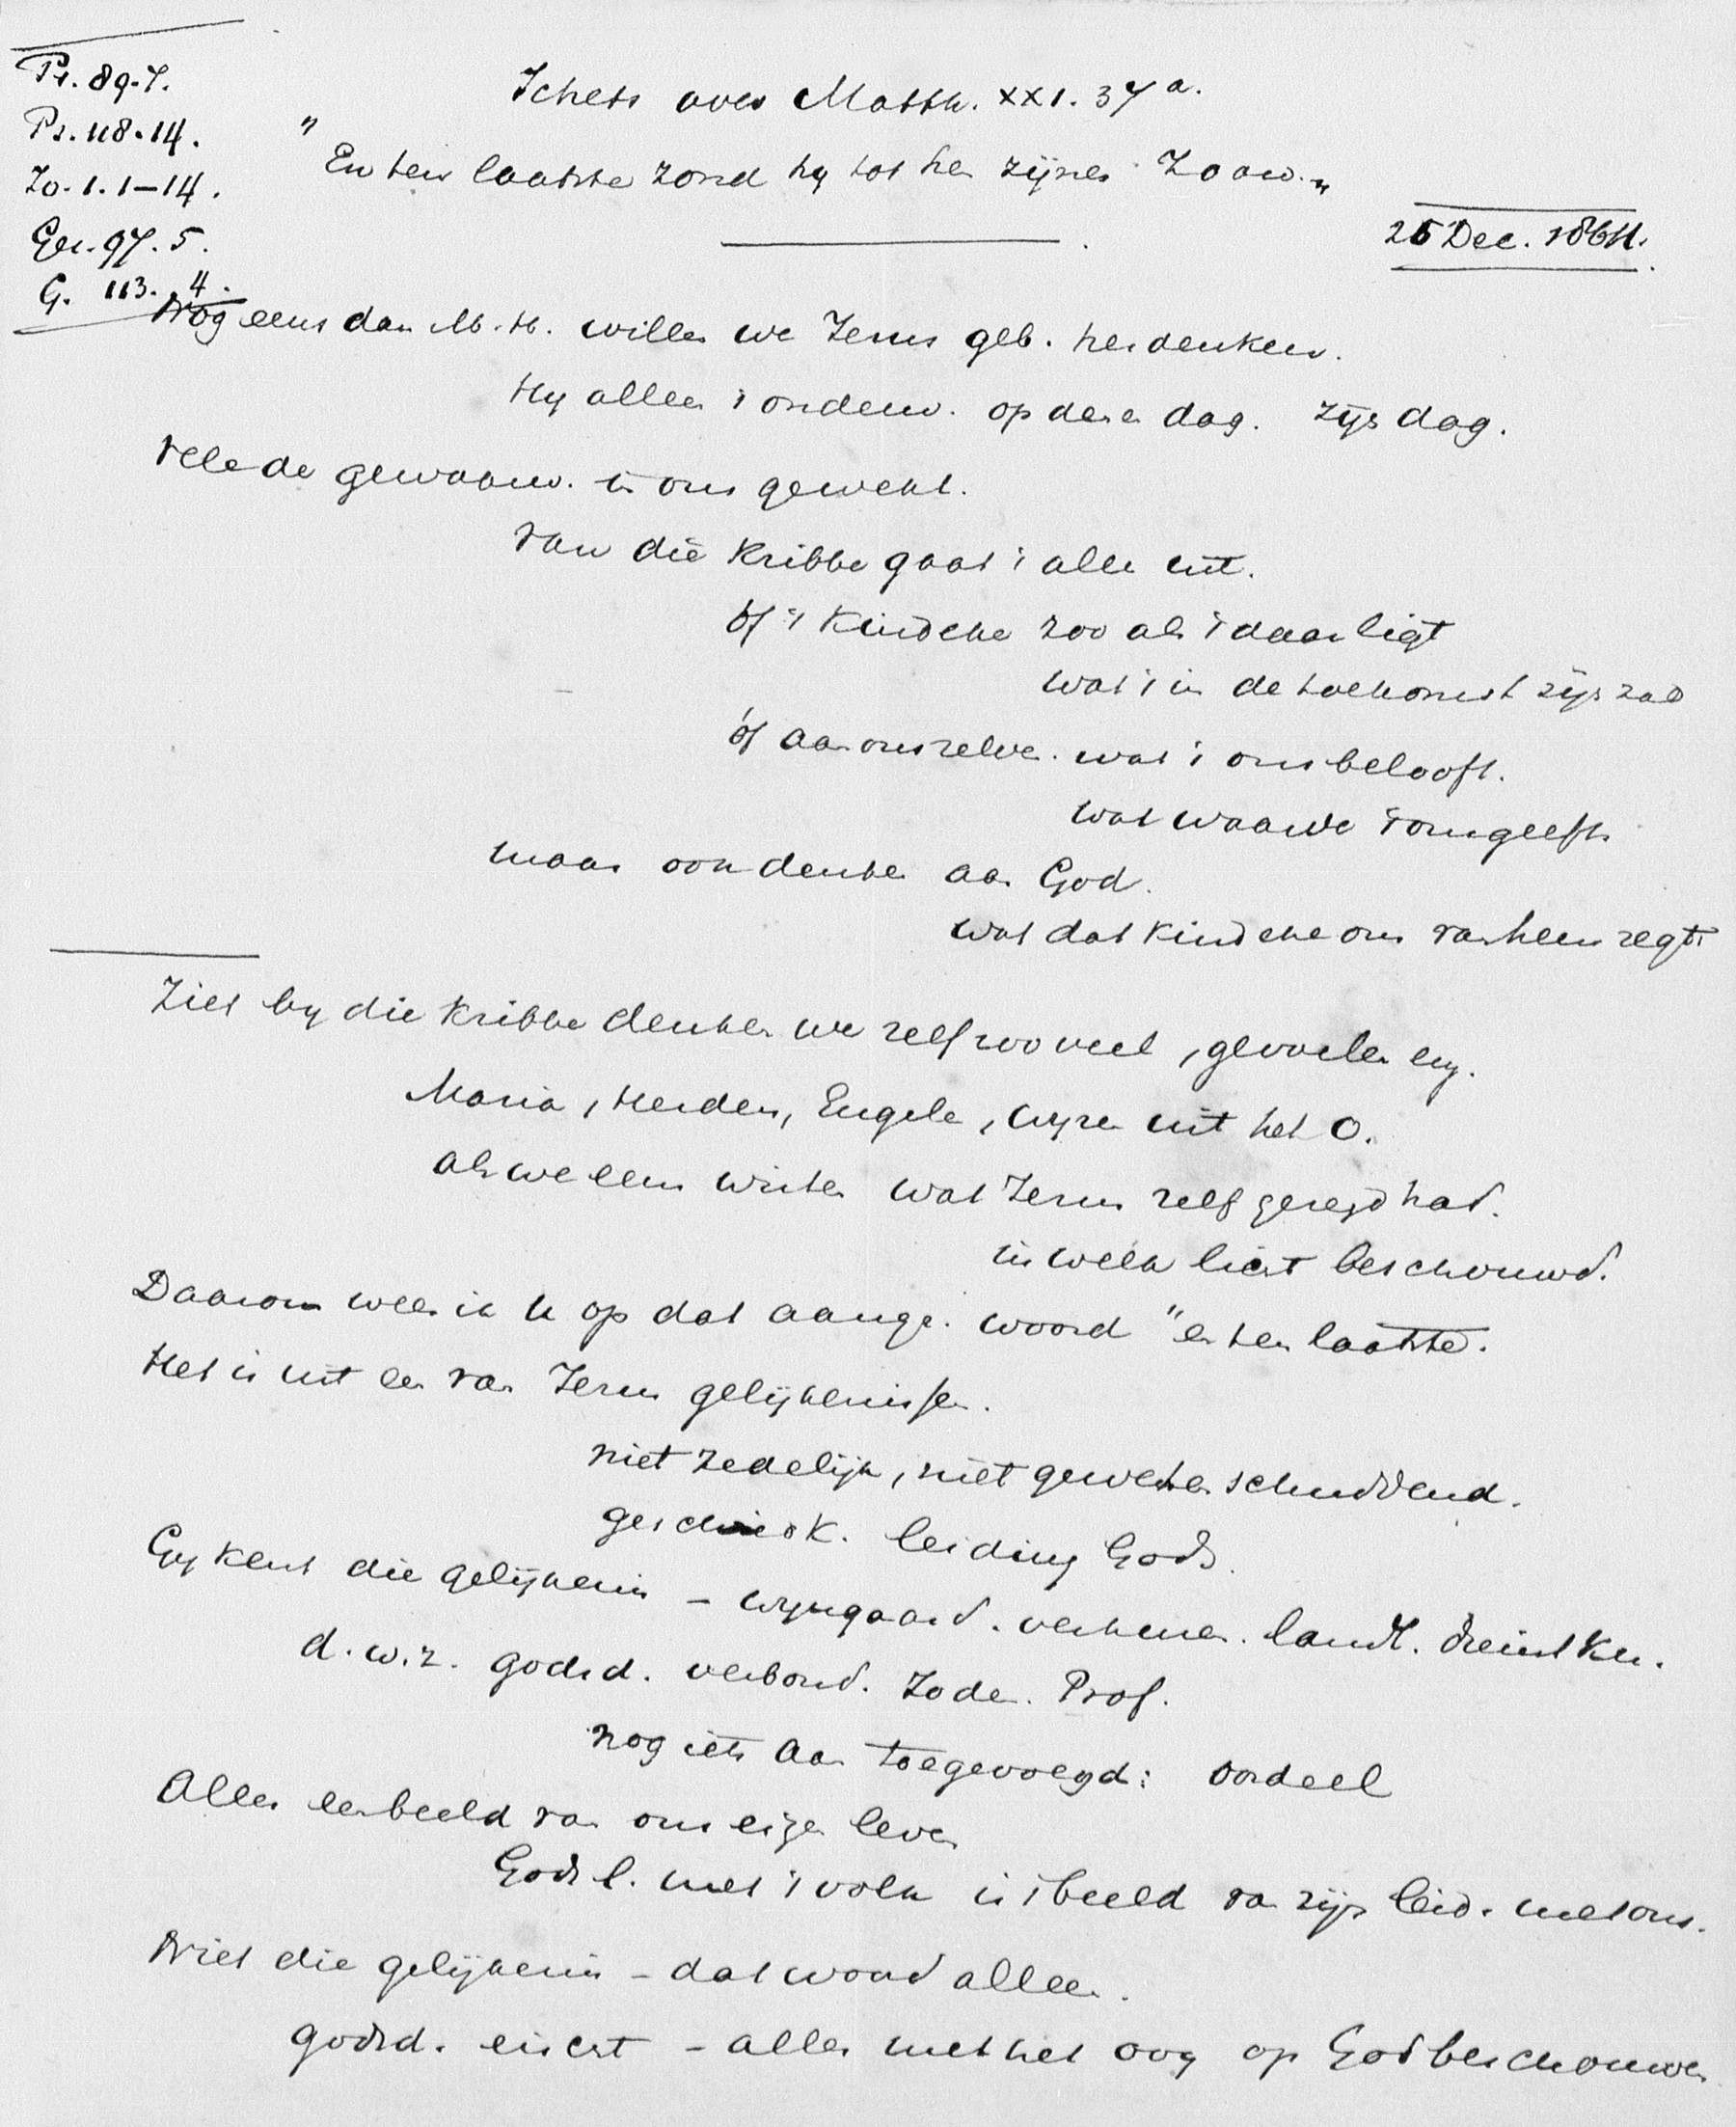 Ps. 89.7.
Ps. 118.14.
Jo. 1. 1–14.
Gez. 97. 5.
G. 113. 4.
Schets over Matth. XXI. 37a.
"En ten laatste zond hy tot hen zijnen Zoon."
25 Dec. 1864.
Nog eens dan M. H. willen we Jezus geb. herdenken.
Hy alleen 't onderw. op dezen dag. zijn dag.
Velede gewaarw. in ons gewekt.
Van die Kribbe gaat 't alles uit.
óf 't Kindeke zoo als 't daar ligt
wat 't in de toekomst zijn zal
óf aan ons zelven. wat 't ons belooft.
wat waarde 't ons geeft.
maar ook denken aan God.
wat dat Kindeke ons van hem zegt.
Ziet by die Kribbe denken we zelf zooveel, gevoelen eng.
Maria, Herders, Engelen, wyzen uit het O.
als we eens wisten wat Jezus zelf gezegd had.
in welk licht beschouwd.
Daarom wees ik U op dat aange. woord "en ten laatste.
Het is uit een van Jezus gelijkenissen.
niet zedelijk, niet geweten schuddend.
geschiedk. leiding Gods.
Gy kent die gelijkenis – wyngaard. verhuren. landl. dienstkn.
d.w.z. godsd. verbond. Joden. Prof.
nog iets aan toegevoegd: oordeel
Alles een beeld van ons eigen leven
Gods l. met 't volk is 't beeld van zijn leid. met ons.
Niet die gelijkenis – dat woord alleen.
godsd. eischt – alles met het oog op God beschouwen